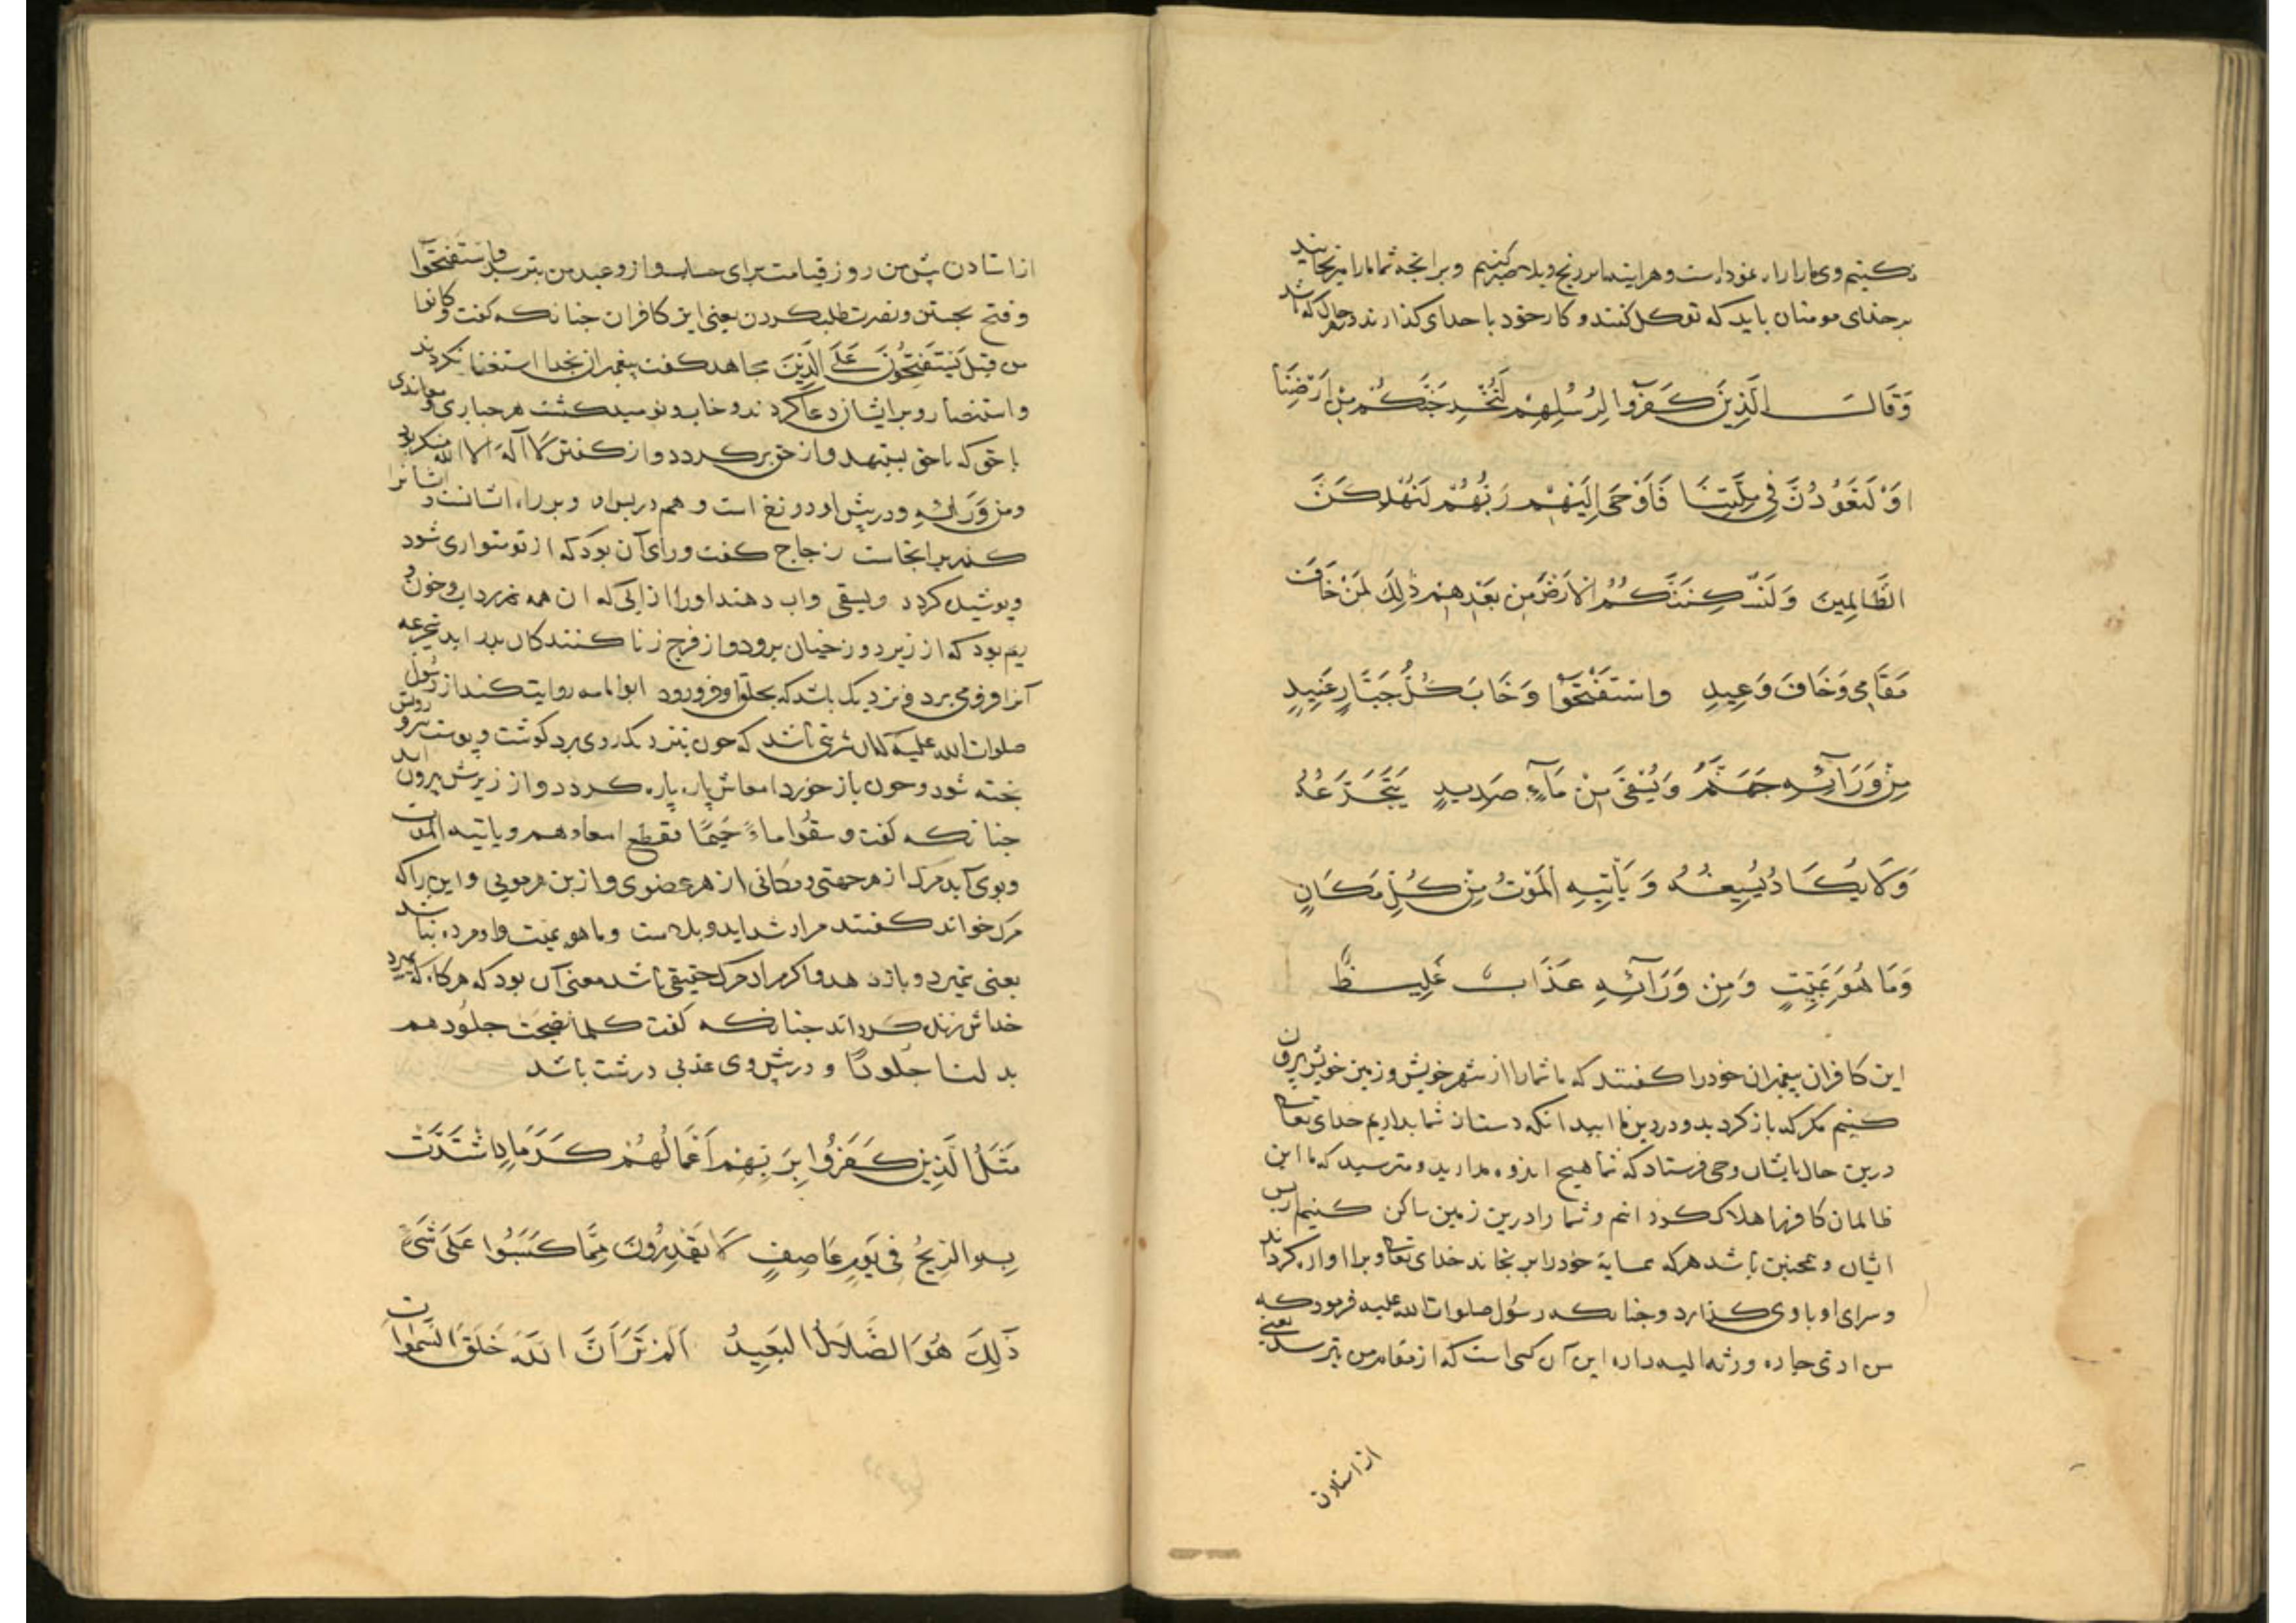 نکنیم و وی ما را راه نمود است و هر اینه ما بر رنج و بلا صبر کنیم و بر انجه شما ما را میرنجانید
بر خدای مومنان باید که توکل کنند و کار خود با خدای کذارند در هر حال که باشد
وَقَالَ الَّذِينَ كَفَرُوا لِرُسُلِهِمْ لَنُخْرِجَنَّكُمْ مِنْ أَرْضِنَا
اَوْ لَتَعُودُنَّ فِي مِلَّتِنَا فَأَوْحَى إِلَيْهِمْ رَبُّهُمْ لَنُهْلِكَنَّ
الظَّالِمِينَ وَلَنُسْكِنَنَّكُمُ الْأَرْضَ مِنْ بَعْدِهِمْ ذَلِكَ لِمَنْ خَافَ
مَقَامِي وَخَافَ وَعِيدِ وَاسْتَفْتَحُوا وَخَابَ كُلُّ جَبَّارٍ عَنِيدٍ
مِنْ وَرَائِهِ جَهَنَّمُ وَيُسْقَى مِنْ مَاءٍ صَدِيدٍ يَتَجَرَّعُهُ
وَلَا يَكَادُ يُسِيغُهُ وَيَأْتِيهِ الْمَوْتُ مِنْ كُلِّ مَكَانٍ
وَمَا هُوَ بِمَيِّتٍ وَمِنْ وَرَائِهِ عَذَابٌ غَلِيظٌ
این کافران پیغمبران خود را کفتند که ما شما را از شهر خویش و زمین خویش بیرون
کنیم مکر که باز کردید و در دین ما ایید انکه دست از شما بداریم خدای تعالی
درین حال بایشان وحی فرستاد که شما هیچ اندوه مدارید و مترسید که ما این
ظالمان کافر را هلاک کردانیم و شما را درین زمین ساکن کنیم از پس
ایشان و همچنین باشد هر که همسایهٔ خود را برنجاند خدای تعالی ویرا اواره کرداند
و سرای او با وی کذارد و جنانکه رسول صلوات الله علیه فرمود که
من اذی جاره ورثه الله داره این آن کسی است که از مقام من بترسد یعنی
از استادن
از استادن پیش من روز قیامت برای حساب و از وعید من بترسد واستفتحوا
و فتح بجستن و نصرت طلب کردن یعنی این کافران جنانکه کفت وکانوا
من قبل يستفتحون على الذين مجاهد کفت پیغمبران بخدا استغنا کردند
و استنصار و بر ایشان دعا کردند و خاب و نومید کشت هر جباری و معاندی
با حق که با حق بستهد و از حق برکردد و از کفتن لا اله الا الله منکر بود
ومن ورائه و در پیش او دوزخ است و هم در پس او و بر راه ایشانست و ایشانرا
کذر بر انجاست زجاج کفت ورای آن بود که از تو متواری شود
و پوشیده کردد ویسقی واب دهند او را از ابی که ان همه زرداب و خون و
ریم بود که از زیر دوزخیان برود و از فرج زنا کنندکان بدر اید یتجرعه
آنرا فرو می برد و نزدیک باشد که بحلق او فرو رود ابو امامه روایت کند از رسول
صلوات الله علیه که ان شربتی باشد که چون بنزدیک روی برد کوشت و پوست روش در او
بخته شود و چون باز خورد امعاش پاره پاره کردد و از زیرش بیرون اید
جنانکه کفت وسقوا ماء حميما فقطع امعاءهم ویاتیه الموت
و بوی آید مرک از هر جهتی و مکانی از هر عضوی و از بن هر مویی و این را که
مرک خواند کفتند مراد شداید و بلاست وما هو بمیت و او مرده نباشد
یعنی نمیرد و باز رهد و اکر مراد مرک حقیقی باشد معنی آن بود که هر کاه که بمیرد
خداش زنده کرداند جنانکه کفت کلما نضجت جلودهم
بدلنا جلودا و در پیش وی عذابی درشت باشد
مَثَلُ الَّذِينَ كَفَرُوا بِرَبِّهِمْ أَعْمَالُهُمْ كَرَمَادٍ اشْتَدَّتْ
بِهِ الرِّيحُ فِي يَوْمٍ عَاصِفٍ لَا يَقْدِرُونَ مِمَّا كَسَبُوا عَلَى شَيْءٍ
ذَلِكَ هُوَ الضَّلَالُ الْبَعِيدُ اَلَمْ تَرَ أَنَّ اللَّهَ خَلَقَ السَّمَوَاتِ